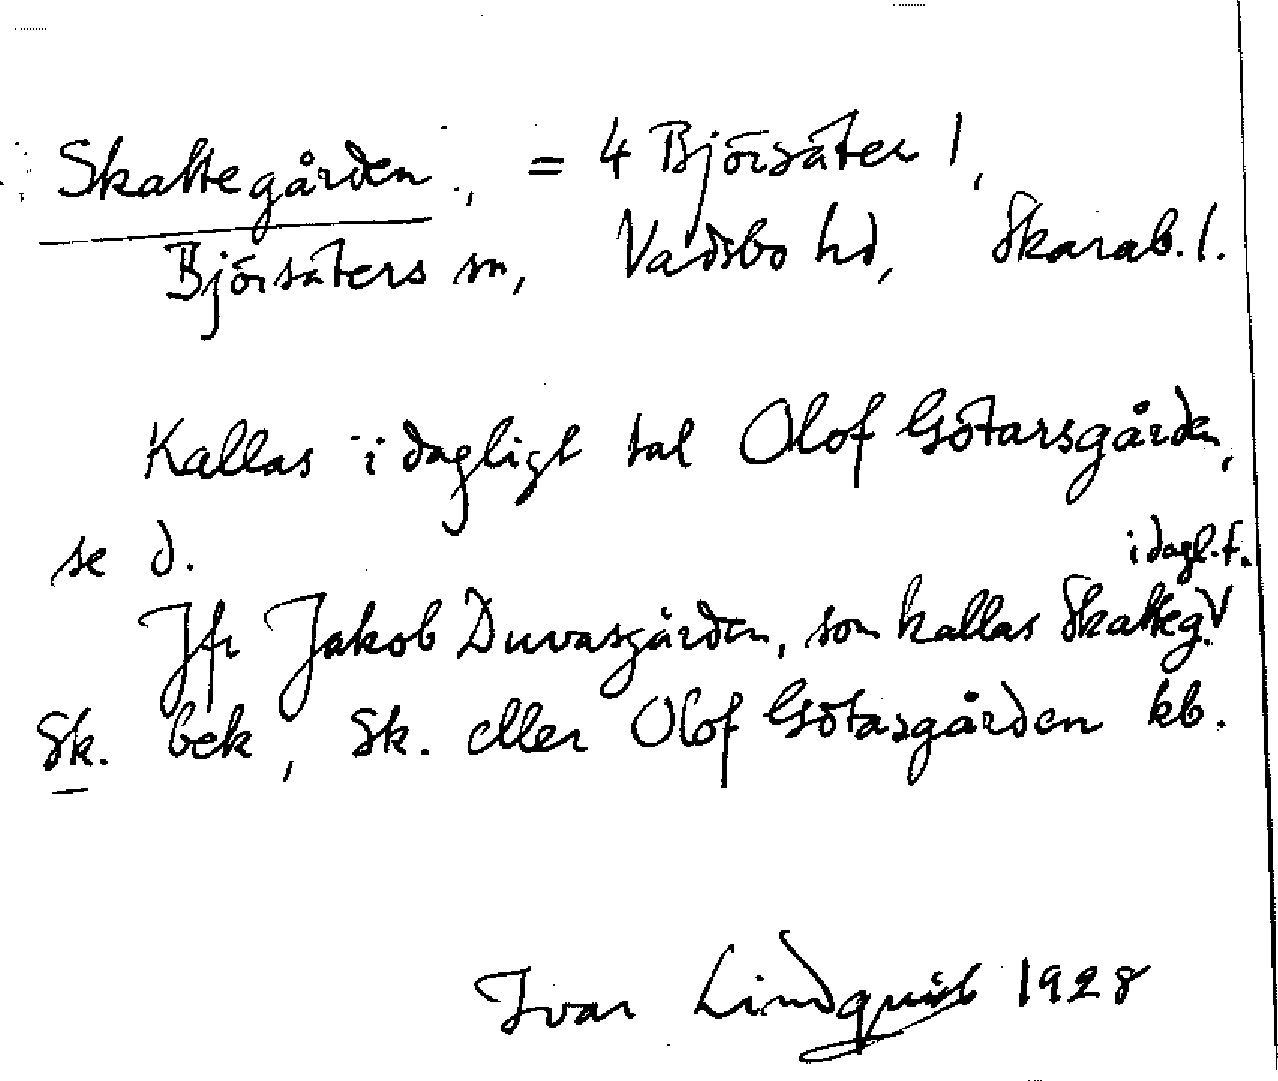 Skattegården, = 4 Björsäter 1,
Björsäters sn, Vadsbo hd, Skarab. l.
Kallas i dagligt tal Olof Götarsgården,
se d.
i dagl. t.
Jfr Jakob Duvasgården, som kallas Skatteg. V
Sk. bek, Sk. eller Olof Götasgården kb.
Ivar Lindquist 1928